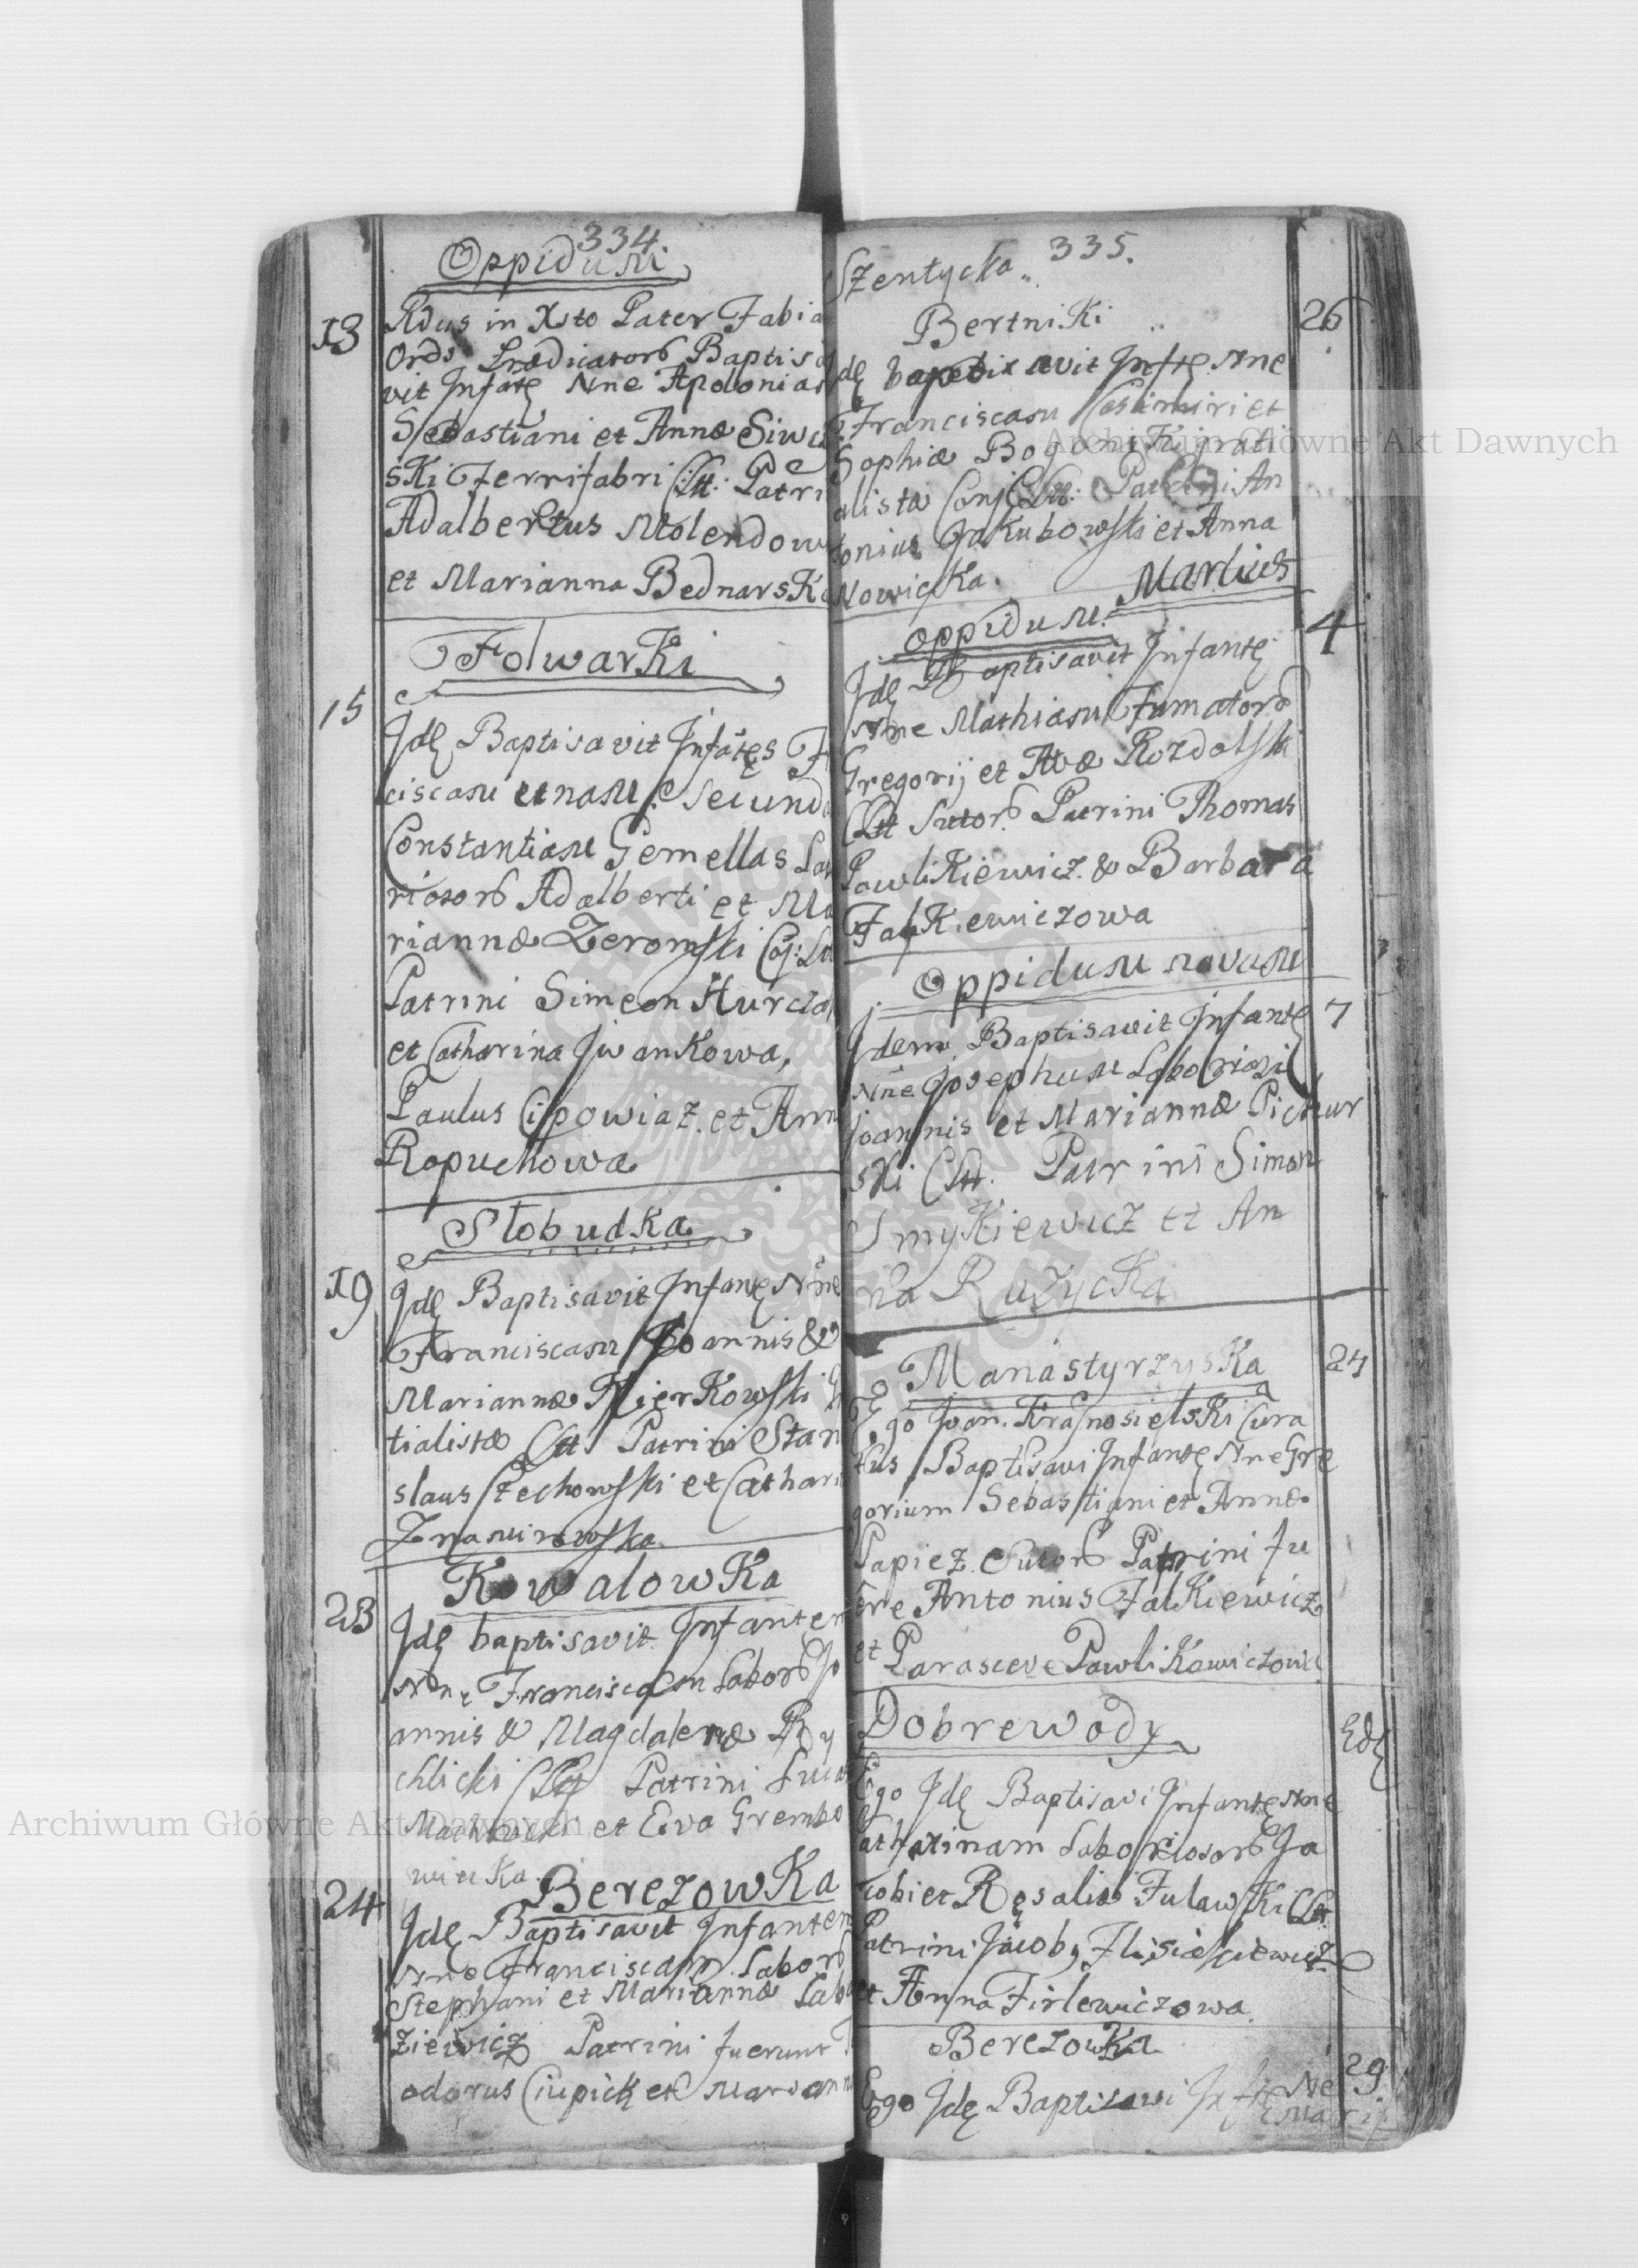 334.
Oppidum
13
Rdus in Xsto Pater Fabia
Ords Prædicatorō Baptisa
vit Infātę Nne Apolonias
Sebastiani et Annæ Siwi
ski Ferrifabri CLtt: Patri
Adalbertus Molendow
et Marianna BednarsKa
FolwarKi
15
Jdę Baptisavit Infātęs F
ciscam unam Secunda
Constantiam Gemellas La
riosorō Adalberti et Ma
riannæ Zeromski Coj: La
Patrini Simeon Hurcza
et Catharina JwanKowa,
Paulus Cipowiaz. et Ann
Ropuchowa
SłobudKa
19
Jdę Baptisavit Infantę Nne
Franciscam Joannis &
Mariannæ MierKowski
tialistæ CLtt Patrini Stan
slaus Czechowski et Cathari
KowalowKa
23
Jdę baptisavit Infantem
Nne Franciscam Laborō Jo
annis & Magdalenæ Ry
chlicki CLtt Patrini Luca
et Eva Grembo
wiecKa
BerezowKa
24
Jdę Baptisavit Infantem
Nne Franciscam Laborō
Stephani et Mariannæ Lab
ziewicz Patrini fuerunt T
odorus Ciupick et Mariann
Szentycka. 335.
BertniKi
26
Jdę baptixavit Inftę Nne
Franciscam Casimiri et
Sophiæ
alistæ Conj CLtt: Patrini An
tonius JaKubowski et Anna
NowicKa.
Martius
oppidum.
4
Jdę Baptisavit Infantę
Nne Mathiam Famatorō
Gregorij et Rozdolski
CLtt Sutorō. Patrini Thomas
PawliKiewicz. & Barbara
FalKiewiczowa
Oppidum novum
7
Jdem Baptisavit Infantę
Nne Josephum Laboriosi
Joannis et Mariannæ Pichur
ski CLtt. Patrini Simon
SmyKiewicz et An
na RużycKa
ManastyrzysKa
24
Ego Joan. KrasnosielsKi Cura
tus Baptisavi Infantę Nne Gre
gorium Sebastiani et Annæ
Papiez. Sutorō Patrini fu
ēre Antonius FalKiewicz
et Parasceve PawliKowiczowa
Dobrewody
Edę
Ego Jdę Baptisavi Infantę Nne
Catharinam Laboriosorō Ja
cobi et Rosaliæ FulawsKi CLtt
Patrini Jacobꝯ
et Anna Firlewiczowa.
BerezowKa
29
Ego Jdę Baptisavi Inftę Nē
Marij
Archiwum Główne Akt Dawnych
Archiwum Główne Akt Dawnych